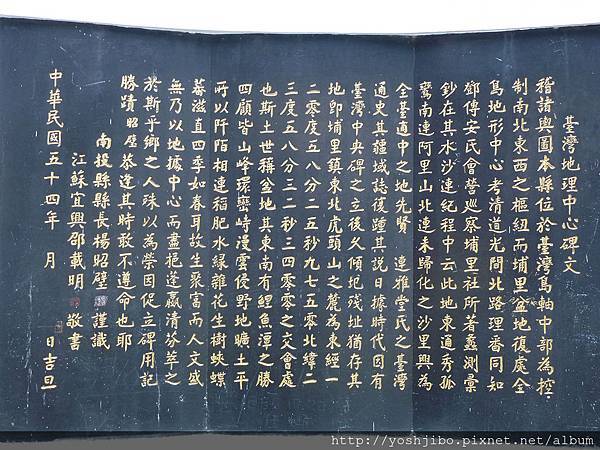 臺灣地理中心碑文
稽諸輿圖本縣位於臺灣島軸中部為控
制南北東西之樞紐而埔里盆地復處全
島地形中心考清道光間北路理番同知
鄧傳安氏會營巡察埔里社所著蠡測彙
鈔在其水沙連紀程中云此地東通秀孤
鸞南連阿里山北連未歸化之沙里興為
全臺適中之地先賢 連雅堂氏之臺灣
通史其疆域誌復踵其說日據時代因有
臺灣中央碑之立後久傾圮殘址猶存其
地即埔里鎮東北虎頭山之麓為東經一
二零度五八分二五秒九七五零北緯二
三度五八分三二秒三四零零之交會處
也斯土世稱盆地其東南有鯉魚潭之勝
四顧皆山峰環巒峙漫雲侵野地曠土平
所以阡陌相連稻肥水綠雜花生樹蛺蝶
蕃滋直四季如春耳故生聚富而人文盛
無乃以地據中心而盡挹蓬瀛清芬茔之
於斯乎鄉之人殊以為榮因促立碑用記
勝蹟昭璧恭逢其時敢不遵命也耶
南投縣縣長楊昭璧 謹識
江蘇宜興邵載明 敬書
中華民國五十四年 月 日吉旦
http://yoshjibo.pixnet.net/album